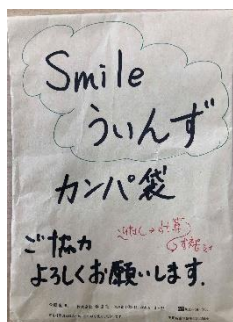 Smile
ういんず
カンパ袋
ご協力
よろしくお願いします.